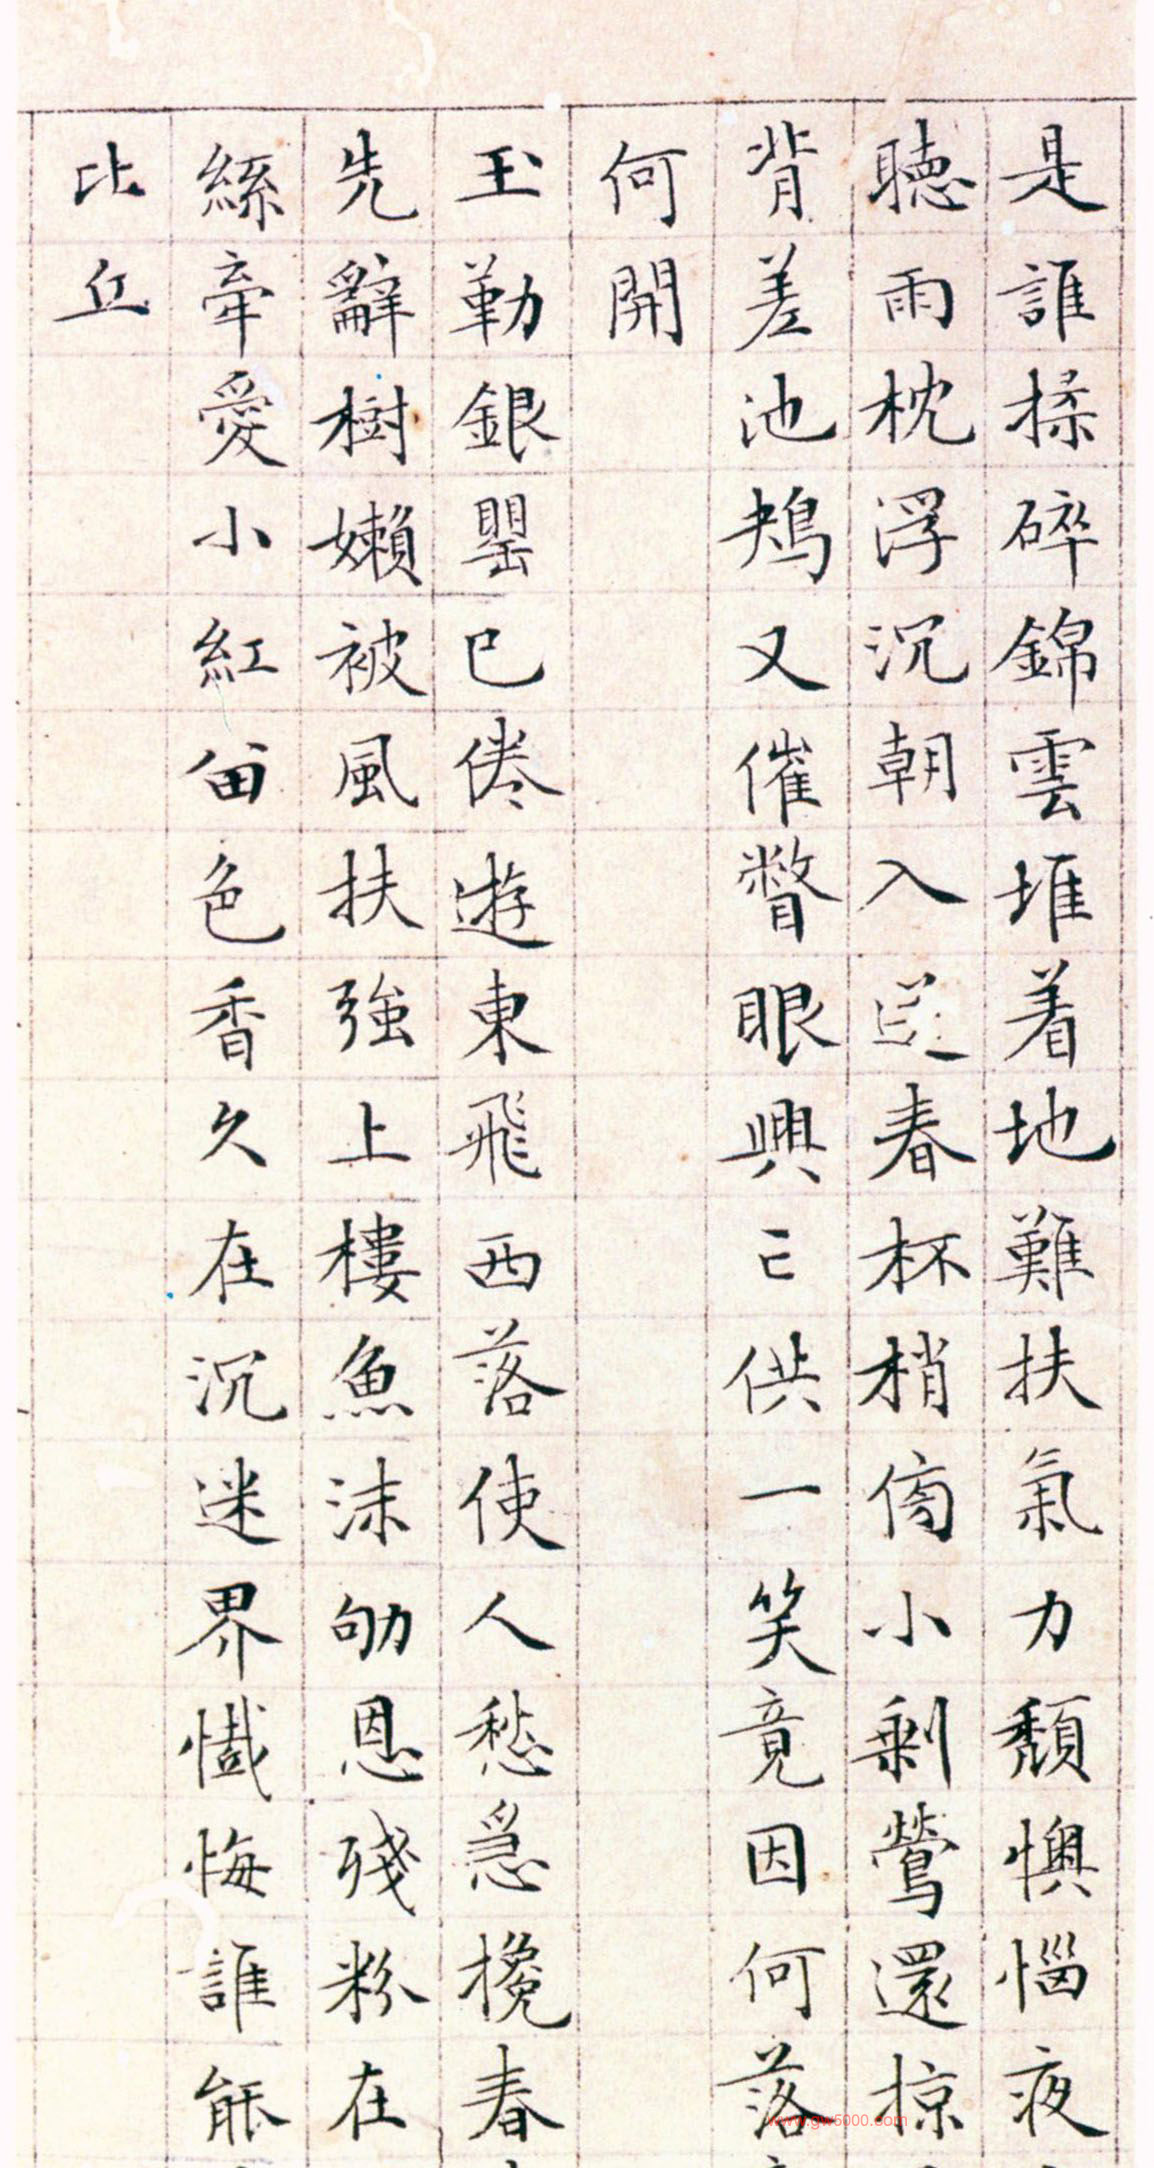 是誰揉碎錦雲堆着地難扶氣力頹懊惱夜
聽雨枕浮沉朝入 春杯梢傍小剩鶯還掠
背差池鴂又催瞥眼興亡供一笑竟因何落
何開
玉勒銀罌已倦遊東飛西落使人愁急攙春
先辭樹嬾被風扶強上樓魚沫劬恩殘粉在
絲牽愛小紅留色香久在沉迷界懺悔誰能
比丘
www.gw5000.com